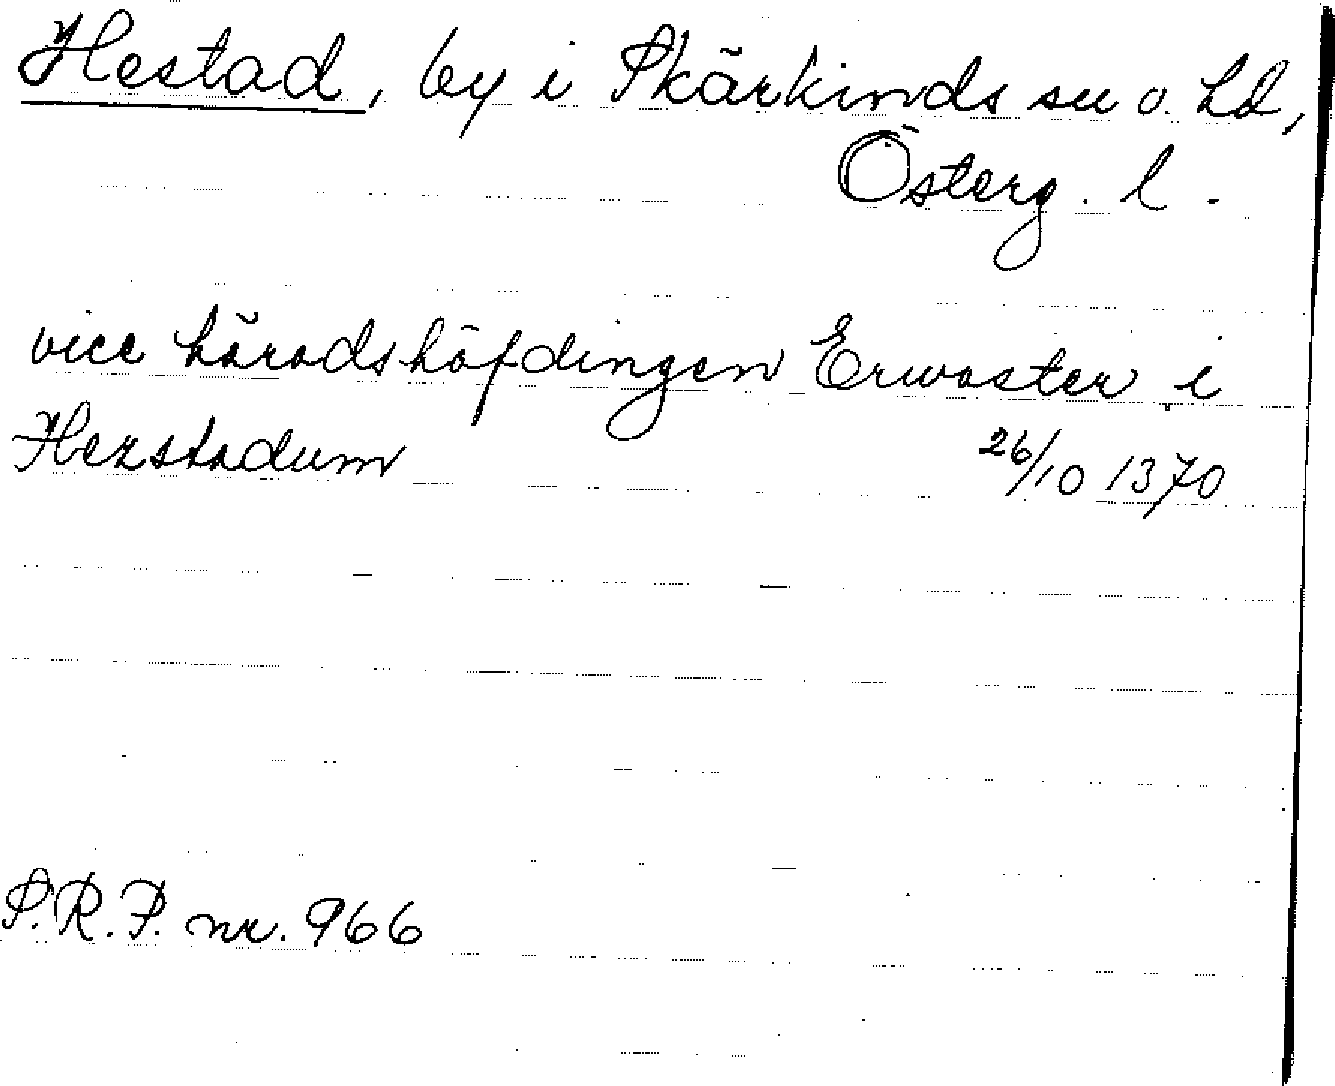 Hestad, by i Skärkinds sn o. hd,
Österg. l.
vice häradshöfdingen Erwaster i
Hezstadum 26/10 1370
S.R.P. nr. 966